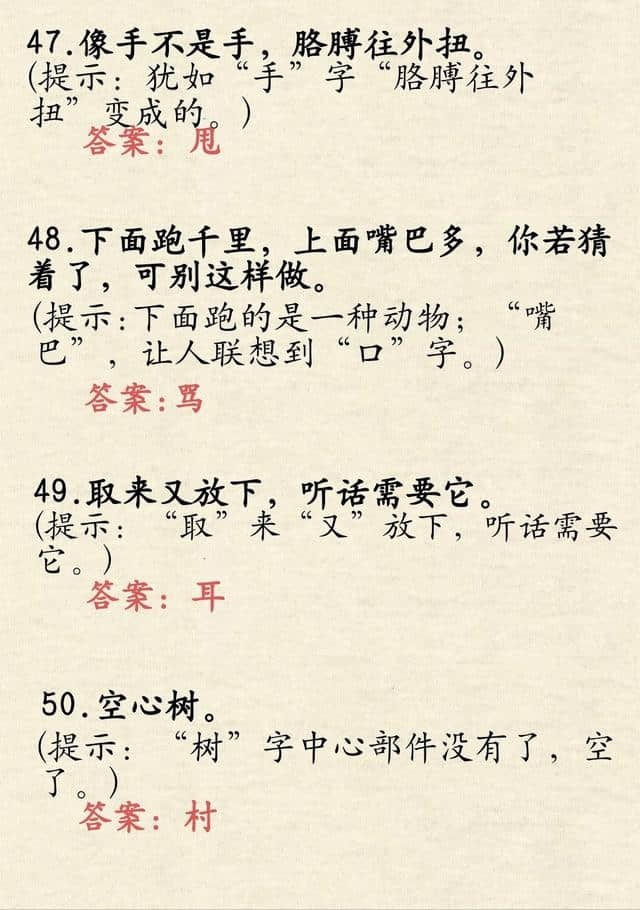 47.像手不是手，胳膊往外扭。
(提示：犹如“手”字“胳膊往外
扭”变成的。)
答案：甩
48.下面跑千里，上面嘴巴多，你若猜
着了，可别这样做。
(提示:下面跑的是一种动物；“嘴
巴”，让人联想到“口”字。)
答案:骂
49.取来又放下，听话需要它。
(提示：“取”来“又”放下，听话需要
它。)
答案：耳
50.空心树。
(提示：“树”字中心部件没有了，空
了。)
答案：村